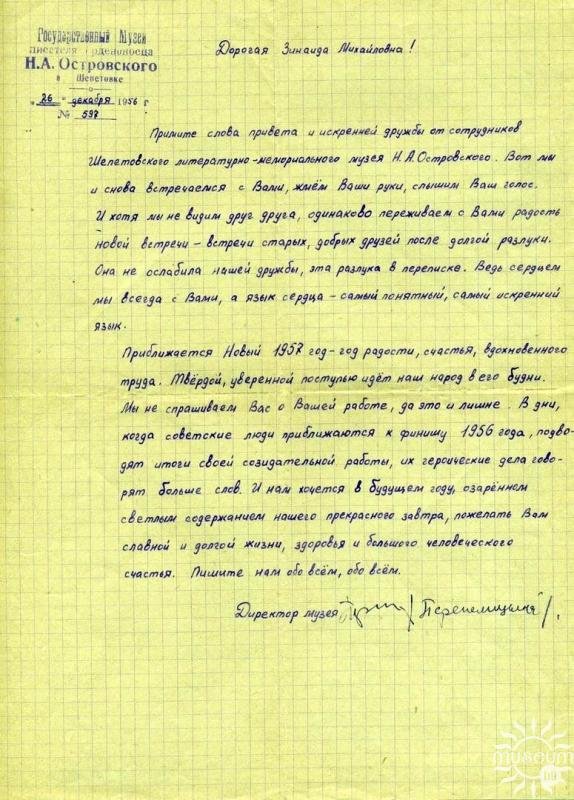 Государственный Музей
писателя орденоносца
Н.А.Островского
в Шепетовке
"26" декабря 1956 г
№ 597
Дорогая Зинаида Михайловна!
Примите слова привета и искренней дружбы от сотрудников
Шепетовского литературно-мемориального музея Н.А.Островского. Вот мы
и снова встречаемся с Вами, жмём Ваши руки, слышим Ваш голос.
И хотя мы не видим друг друга, одинаково переживаем с Вами радость
новой встречи – встречи старых, добрых друзей после долгой разлуки.
Она не ослабила нашей дружбы, эта разлука в переписке. Ведь сердцем
мы всегда с Вами, а язык сердца – самый понятный, самый искренний
язык.
Приближается Новый 1957 год – год радости, счастья, вдохновенного
труда. Твёрдой, уверенной поступью идёт наш народ в его будни.
Мы не спрашиваем Вас о Вашей работе, да это и лишне. В дни,
когда советские люди приближаются к финишу 1956 года, подво-
дят итоги своей созидательной работы, их героические дела гово-
рят больше слов. И нам хочется в будущем году, озарённом
светлым содержанием нашего прекрасного завтра, пожелать Вам
славной и долгой жизни, здоровья и большого человеческого
счастья. Пишите нам обо всём, обо всём.
Директор музея
museum